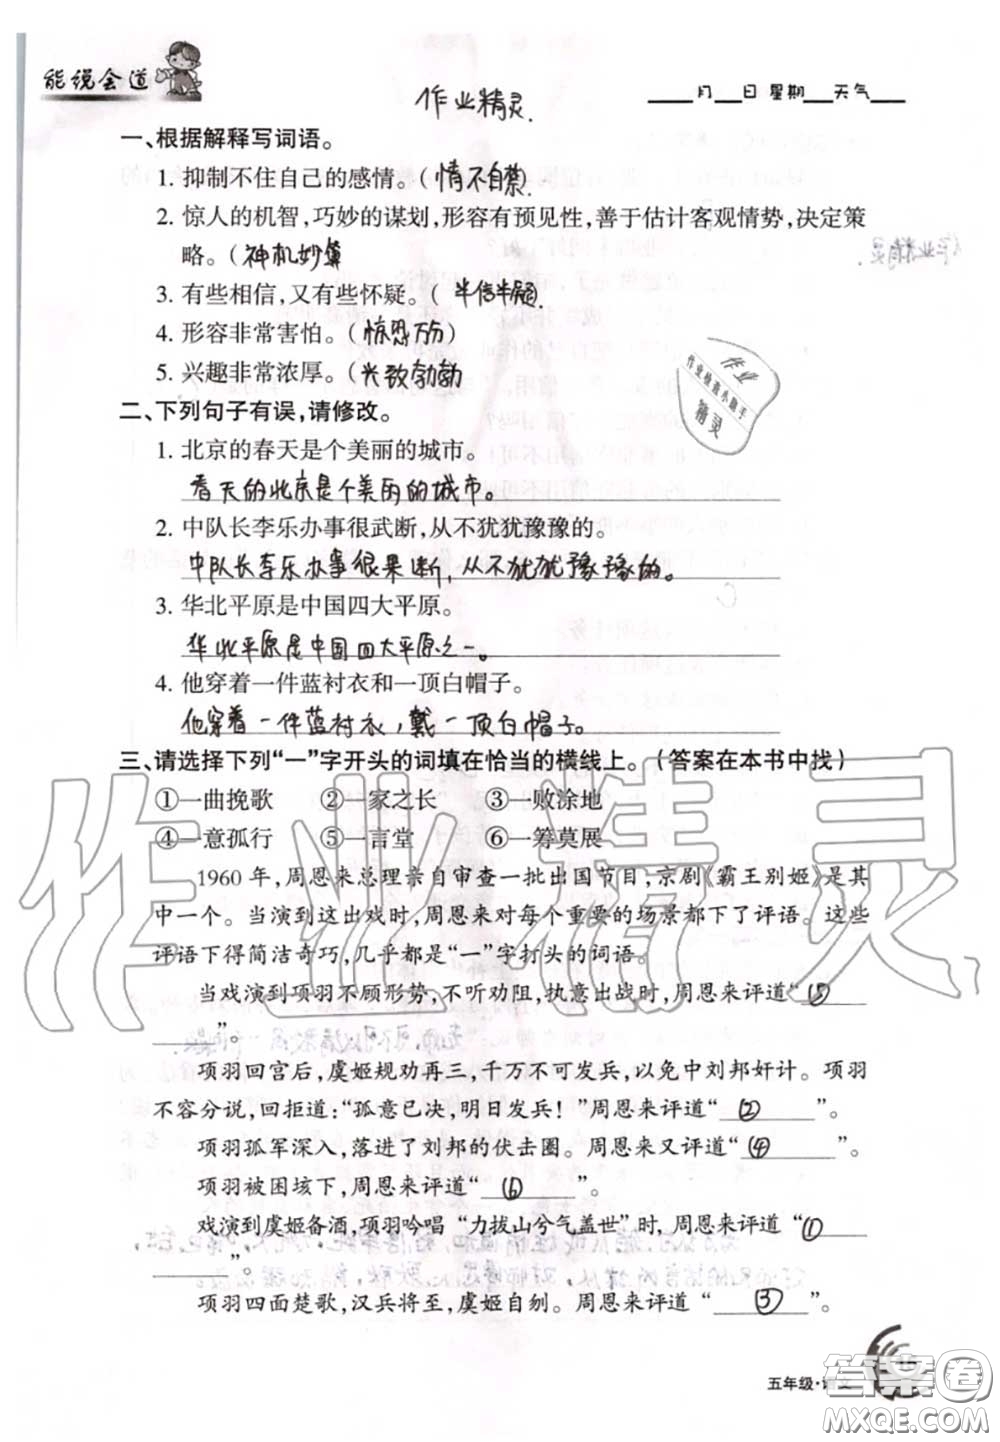 能说会道
作业精灵.
月 日 星期 天气
一、根据解释写词语。
1. 抑制不住自己的感情。(情不自禁.
2. 惊人的机智,巧妙的谋划,形容有预见性,善于估计客观情势,决定策
略。(神机妙算
3. 有些相信,又有些怀疑。(半信半疑.
4. 形容非常害怕。(惊恐万分
5. 兴趣非常浓厚。(兴致勃勃
作业
作业检查小助手
精灵
作业精灵.
二、下列句子有误,请修改。
1. 北京的春天是个美丽的城市。
春天的北京是个美丽的城市。
2. 中队长李乐办事很武断,从不犹犹豫豫的。
中队长李乐办事很果断,从不犹犹豫豫的。
3. 华北平原是中国四大平原。
华北平原是中国四大平原之一。
4. 他穿着一件蓝衬衣和一顶白帽子。
他穿着一件蓝衬衣,戴一顶白帽子。
三、请选择下列“一”字开头的词填在恰当的横线上。(答案在本书中找)
①一曲挽歌 ②一家之长 ③一败涂地
④一意孤行 ⑤一言堂 ⑥一筹莫展
1960 年,周恩来总理亲自审查一批出国节目,京剧《霸王别姬》是其
中一个。当演到这出戏时,周恩来对每个重要的场景都下了评语。这些
评语下得简洁奇巧,几乎都是“一”字打头的词语。
当戏演到项羽不顾形势,不听劝阻,执意出战时,周恩来评道“⑤
”。
项羽回宫后,虞姬规劝再三,千万不可发兵,以免中刘邦奸计。项羽
不容分说,回拒道:“孤意已决,明日发兵!”周恩来评道“②”。
项羽孤军深入,落进了刘邦的伏击圈。周恩来又评道“④”。
项羽被困垓下,周恩来评道“⑥”。
戏演到虞姬备酒,项羽吟唱“力拔山兮气盖世”时,周恩来评道“①
”。
项羽四面楚歌,汉兵将至,虞姬自刎。周恩来评道“③”。
作业精灵
五年级·语文
答案圈
MXQE.COM